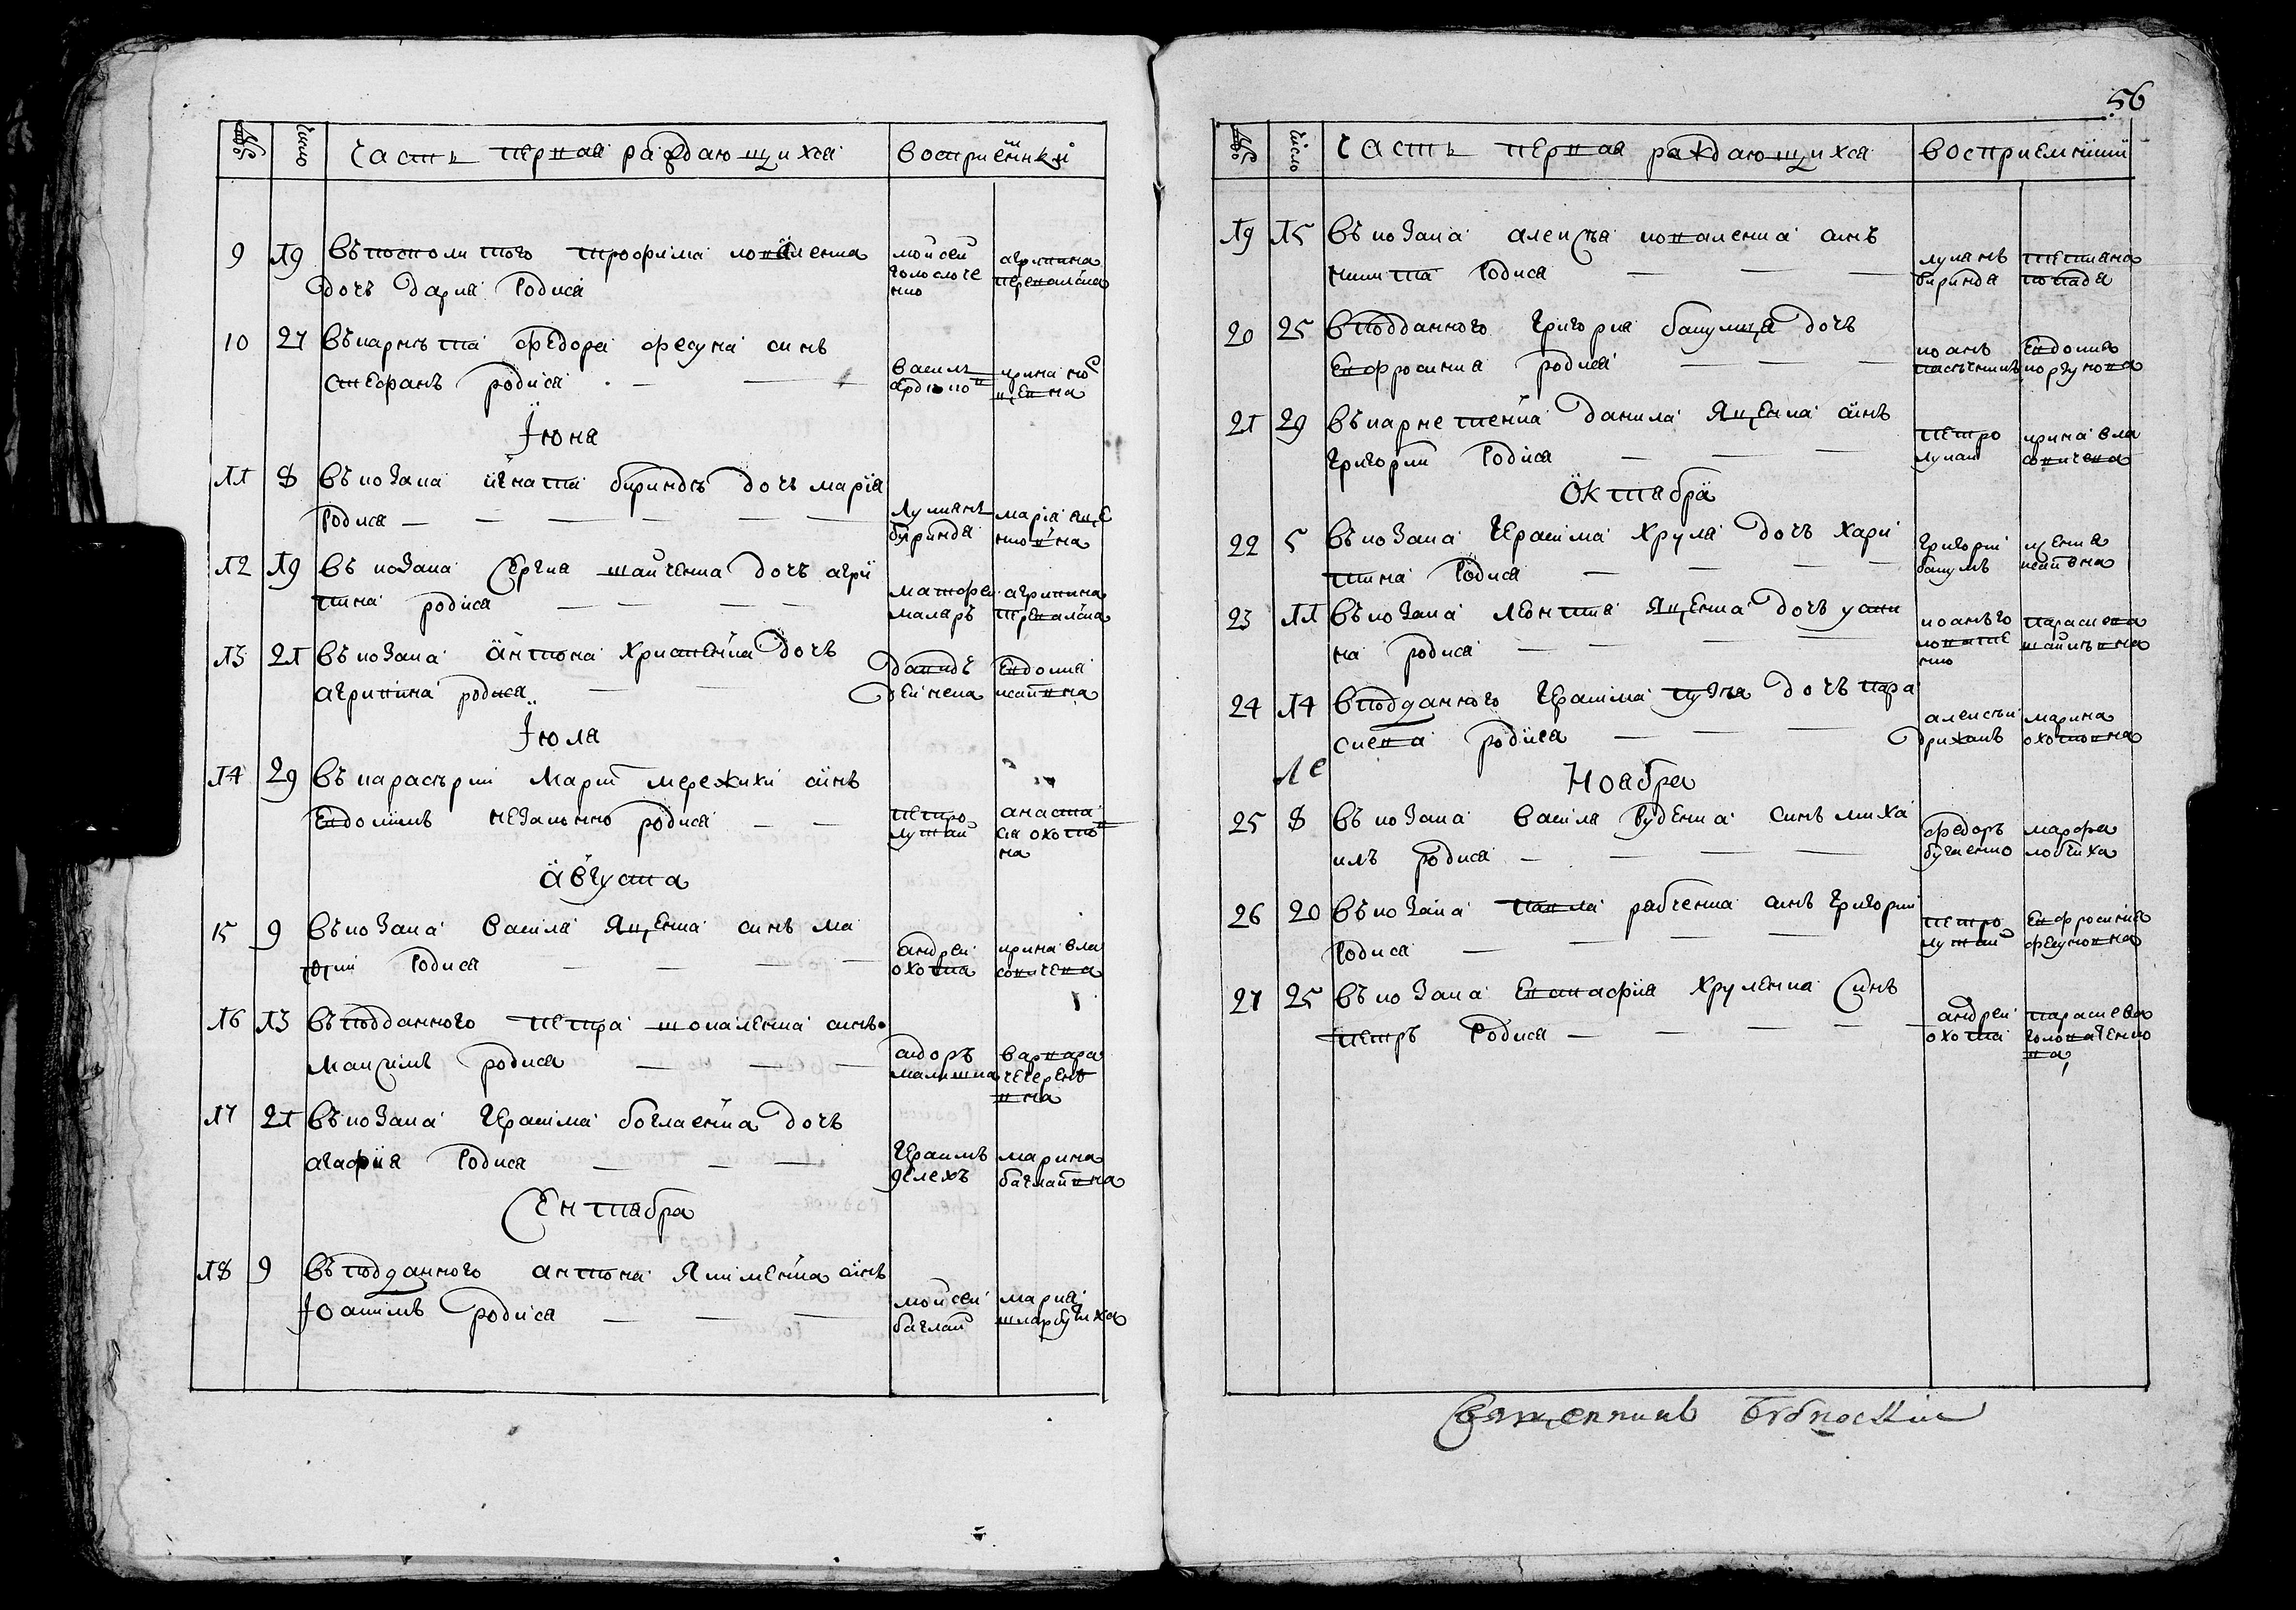 56
число Часть первая раждающихся восприемники
9 19 въ посполитого трофима коваленка
дочъ дария родися
мойсей
голослоче
нко
агрипина
10 27 въ карнета федора фесуна синъ
стефанъ родися
василь
ирина но
ценкова
Іюня
11 8 въ козака игната биринди дочъ мария
родися
лукиянъ
биринда
мария яце
нковна
12 19 въ козака сергия шайченка дочъ агри
пина родися
матфей
маляръ
агрипина
13 21 въ козака антона христенка дочъ
агрипина родися
давидъ
дейнека
евдокия
исаивна
Іюля
14 29 въ карасѣрки мари мережихи синъ
евдокимъ незаконно родися
петро
лутай
анаста
сия охотов
на
августа
15 9 въ козака васила яценка синъ ма
ѳтий родися
андрей
охотка
ирина вла
совичева
16 13 въ подданного петра шокаленка синъ
максимъ родися
сидоръ
малишка
варвара
чечерен
вна
17 21 въ козака герасима боглаенка дочъ
агафия родися
герасимъ
делехъ
марина
баглаивна
Сентября
18 9 въ подданного антона якименка синъ
Іоакимъ родися
мойсей
баглай
мария
шкарбуниха
число Часть первая раждающихся восприемники
19 15 въ козака алексѣя коваленка синъ
никита родися
лукянъ
биринда
тетияна
попадя
20 25 въ подданного григория бакулця дочъ
евфросиния родися
иоанъ
пасѣчникъ
евдокия
коржунова
21 29 въ карнетенка данила яценка синъ
григорий родися
петро
лукаш
ирина вла
совичева
Октября
22 5 въ козака герасима хруля дочъ хари
тина родися
григорий
бакумъ
ксения
исаивна
23 11 въ козака леонтия яценка дочъ усти
на родися
иоанъ го
ловатте
нко
параскева
24 14 въ подданного герасима пузѣя дочъ пара
скева родися
алексѣй
дрижакъ
марина
охотовна
Ноября
25 8 въ козака васила руденка синъ миха
илъ родися
федоръ
бугаенко
марфа
ловгиха
26 20 въ козака павла рябченка синъ григорий
родися
петро
лутай
евфросиния
фесуновна
27 25 въ козака евстафия хруленка синъ
петръ родися
андрей
охотка
параскева
головаченко
ва
Священникъ